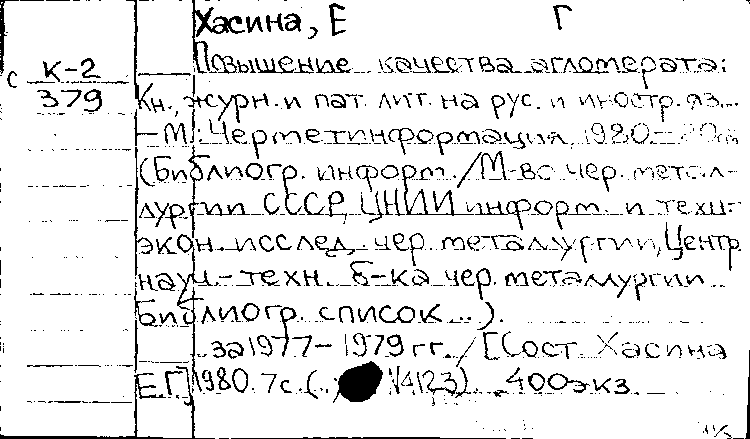 Хасина, Е Г
с К-2
379
Повышение качества агломерата:
Кн., журн. и пат. лит. на рус. и иностр. яз...
– М.: Черметинформация, 1980. – 20см
(Библиогр. информ. / М-во чер. метал-
лургии СССР, ЦНИИ информ. и техн.-
экон. исслед. чер. металлургии, Центр.
науч.-техн. б-ка чер. металлургии
Библиогр. список ...).
за 1977–1979 гг. / [Сост. Хасина
Е.Г.] 1980. 7с. (.. 14123). 400экз.